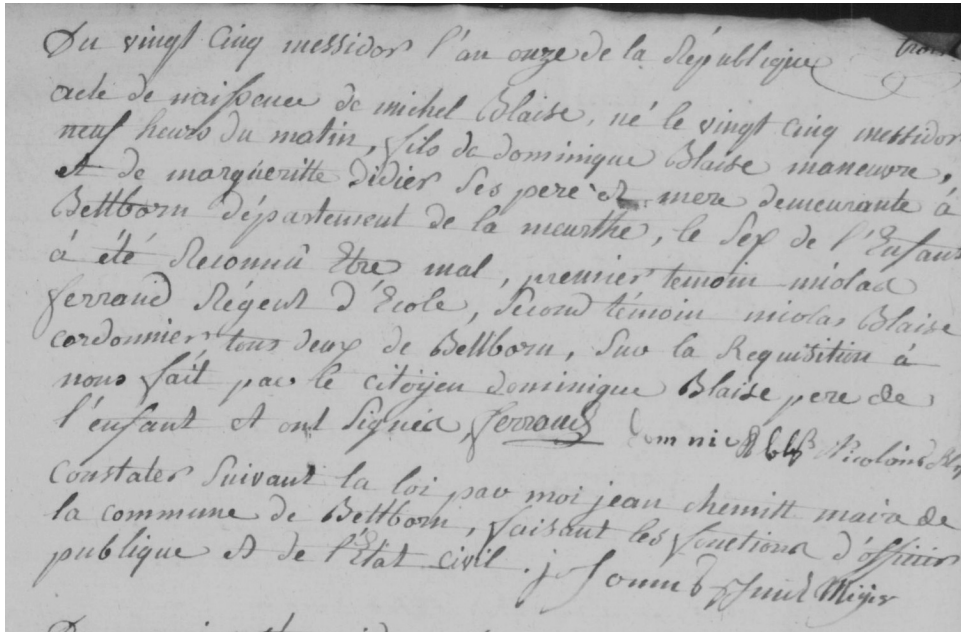 Du vingt Cinq messidor l'an onze de la République
acte de naissence de michel Blaise, né le vingt cinq messidor
neuf heurs du matin, fils de dominique Blaise maneuvre,
et de margueritte Didier ses pere et mere demeurante à
Bettborn département de la meurthe, le sex de l'Enfans
à été Reconnû Etre mal, premier temoin nicolas
ferraud Régent d'Ecole, second témoin nicolas Blaise
cordonnier tous deux de Bettborn, sur la Requisition à
nous fait par le citoÿen dominique Blaise pere de
l'enfant et ont signés, ferraud Nicolaus
Constater suivant la loi par moi jean chemitt maire de
la commune de Bettborn, faisant les fonctions d'officier
publique et de l'État civil. Meÿer